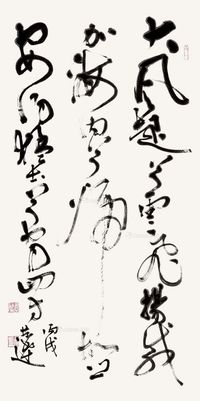 大风起兮云飞扬威
加海内兮归故
安得猛士兮守四方
丙戌